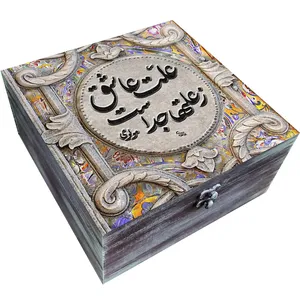 علت عاشق
ز علتها جداست
مولوی